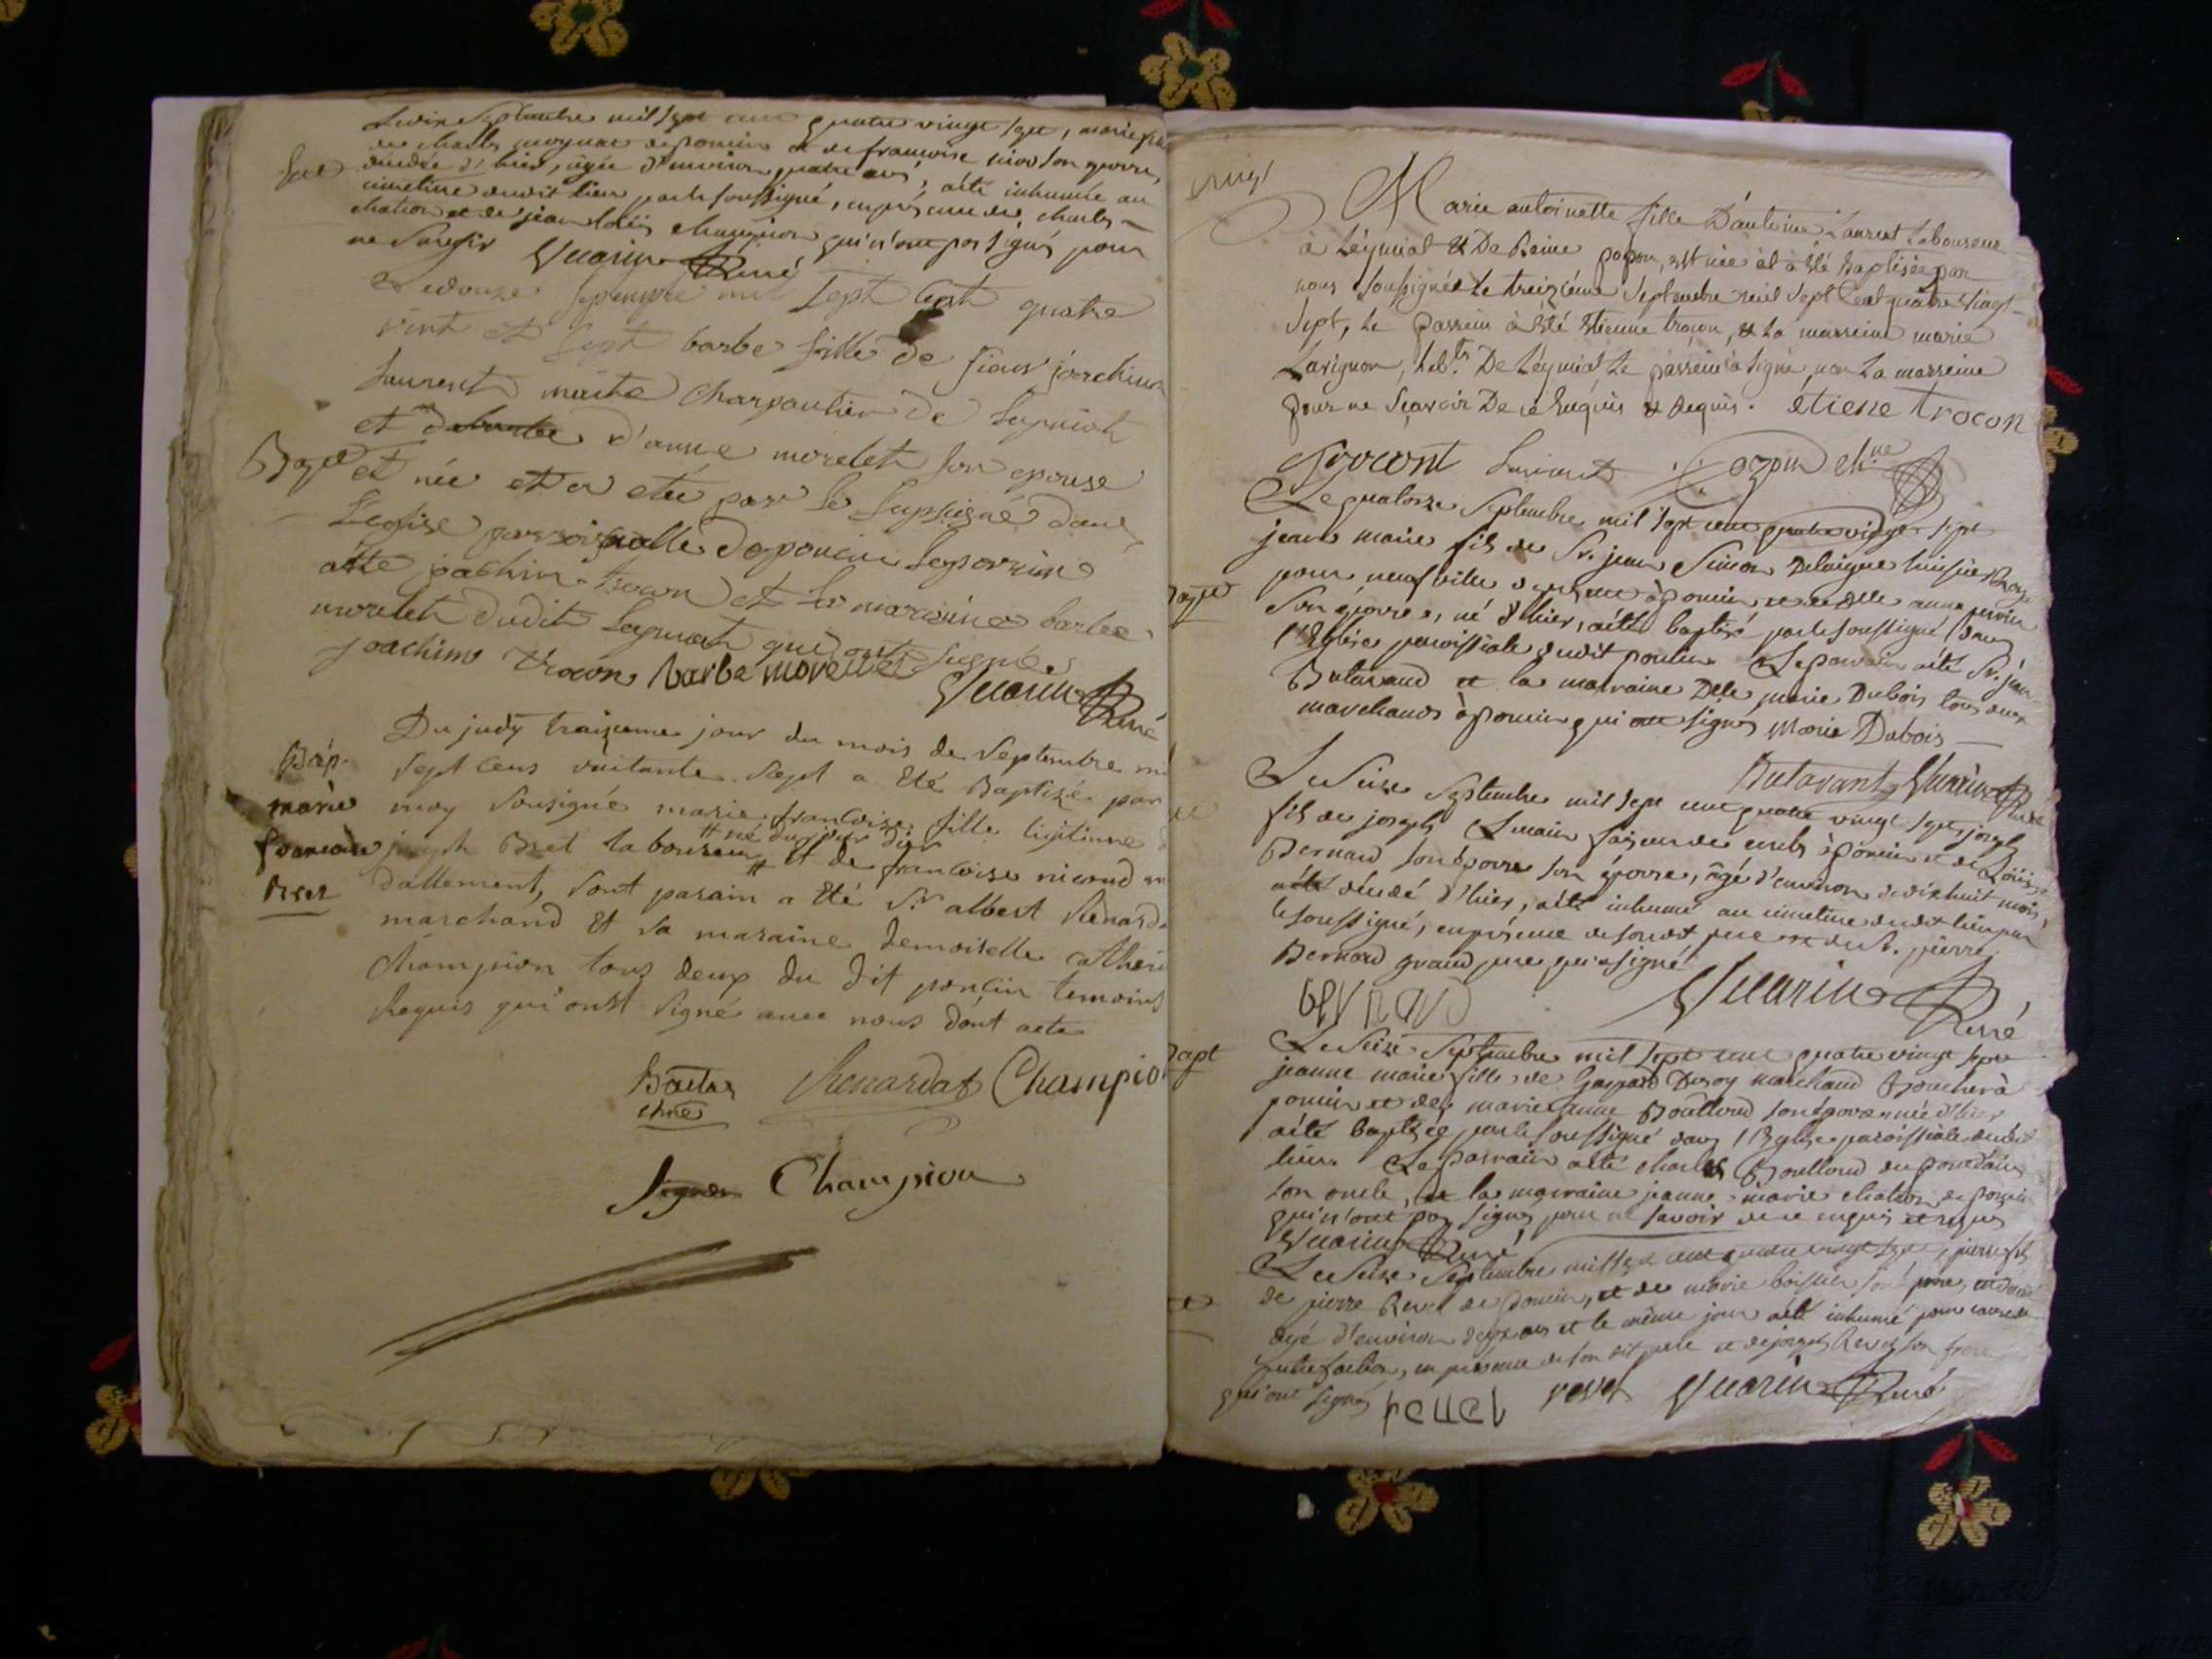 septembre mil sept cent quatre vingt sept, marie
de charles de poncin et de francoise son epouse,
decedée d'hier, agée d'environ quatre ans, a été inhumée au
Sep
cimetiere dudit lieu par le soussigné, en présence de charles
chation et de jean loüis champion qui n'ont pas signés pour
ne savoir Guarin Curé
Le douze septembre mil sept cent quatre
vint et sept barbe fille de sieur joachim
laurent maite charpantier de leymiat
et d'anne morelet son epouse
Bapt
et née et a eté par le soussigné dans
l'eglise parroissialle de poncin le parrin a
été joachin trocon et la maraine barbe
morelet dudit leymiat qui ont signés
joachim trocon barbe morellet
Guarin Curé
Du judy traizieme jour du mois de Septembre mi
Bap.
sept cens huitante sept a eté Baptizé par
marie
moy sousigné marie francoise fille ligitime
né du jour d'hier
francoise
joseph Bret laboureur et de francoise nicoud
Bret
d'allement, sont parain a eté Sr albert Renard
marchand et sa maraine demoiselle catheri
Champion tous deux du dit poncin temoins
Requis qui ont signé avec nous dont acte
Renardat Champio
Champion
Marie antoinette fille D'antoine Laurent Laboureur
à Leymiat & De Reine papon, est née et à été Baptisée par
nous soussignés Le treizieme Septembre mil sept Cent quatre Vingt
Sept, Le Parrein à été Etienne trocon, & La marreine marie
Lavignon, hab.ts De Leymiat Le parrein à signé, non La marreine
pour ne Sçavoir De ce Enquis & Requis. etiene trocon
trocont Laurent
Le quatorze Septembre mil sept cent quatre vingt sept
jean marie fils de Sr. jean Simon Delaigue huissier
Bapt
pour à poncin et de Delle anne
son épouse, né d'hier, a été baptisé par le soussigné dans
l'Eglise paroissiale dudit poncin. Le parrain a été Sr. jean
Butavand et la marraine Delle marie Dubois tous deux
marchands à poncin qui ont signés Marie Dubois
Butavant Guarin Curé
Le Seize Septembre mil sept cent quatre vingt sept, joseph
fils de joseph à poncin et de Loüise
Bernard son épouse, âgé d'environ dixhuit mois,
décédé d'hier, a été inhumé au cimetiere dudit lieu par
le soussigné, en présence de son dit pere et de Sr. pierre
Bernard grand pere qui a signé
Guarin Curé
Le Seize Septembre mil sept cent quatre vingt sept
Bapt
jeanne marie fille de Gaspard Deroy marchand Boucher à
poncin et de marie anne Boulloud son épouse née d'hier
a été baptisée par le soussigné dans l'Eglise paroissiale dudit
lieu. Le parrain a été charles Boulloud du pont dain
son oncle, et la marraine jeanne marie chation de poncin
qui n'ont pas signés pour ne savoir de ce enquis et requis
Guarin Curé
Le Seize Septembre mil sept cent quatre vingt sept, pierre fils
de pierre Revel de poncin, et de marie son épouse,
agé d'environ deux ans et le même jour a été inhumé pour cause de
putrefaction, en présence de son dit pere et de joseph Revel son frere
qui ont signés revel revel Guarin Curé